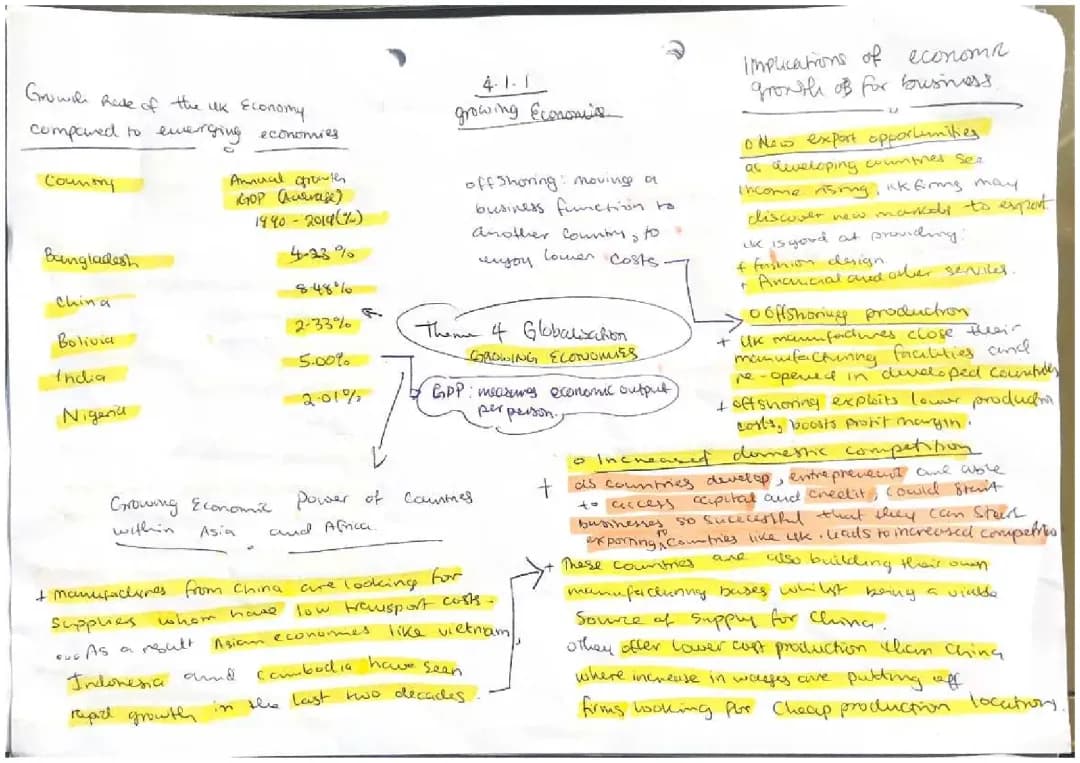 4.1.1
growing Economies
Growth Rate of the UK Economy
compared to emerging economies
Country
Annual growth
GDP (Average)
1990-2019(%)
Bangladesh
4.33%
China
8.48%
Bolivia
2.33%
India
5.00%
Nigeria
2.01%
offshoring: moving a
business function to
another country, to
enjoy lower costs
Theme 4 Globalisation
GROWING ECONOMIES
GDP: measures economic output
per person.
Growing Economic Power of Countries
within Asia and Africa.
+ manufactures from China are looking for
supplies whom have low transport costs.
As a result Asian economies like vietnam,
Indonesia and Cambodia have seen
rapid growth in the last two decades.
Implications of economic
growth of for business.
o New export opportunities
as developing countries see
income rising, UK firms may
discover new markets to export
UK is good at providing:
+ fashion design
+ financial and other services.
o Offshoring production
+ UK manufactures close their
manufacturing facilities and
re-opened in developed countries
+ offshoring exploits lower production
costs, boosts profit margin.
o Increased domestic competition
+ as countries develop, entrepreneur are able
to access capital and credit, could start
businesses so successful that they can start
exporting to countries like UK. leads to increased competition
+ These countries are also building their own
manufacturing bases whilst being a viable
source of supply for China.
o they offer lower cost production than China
where increase in wages are putting off
firms looking for cheap production locations.